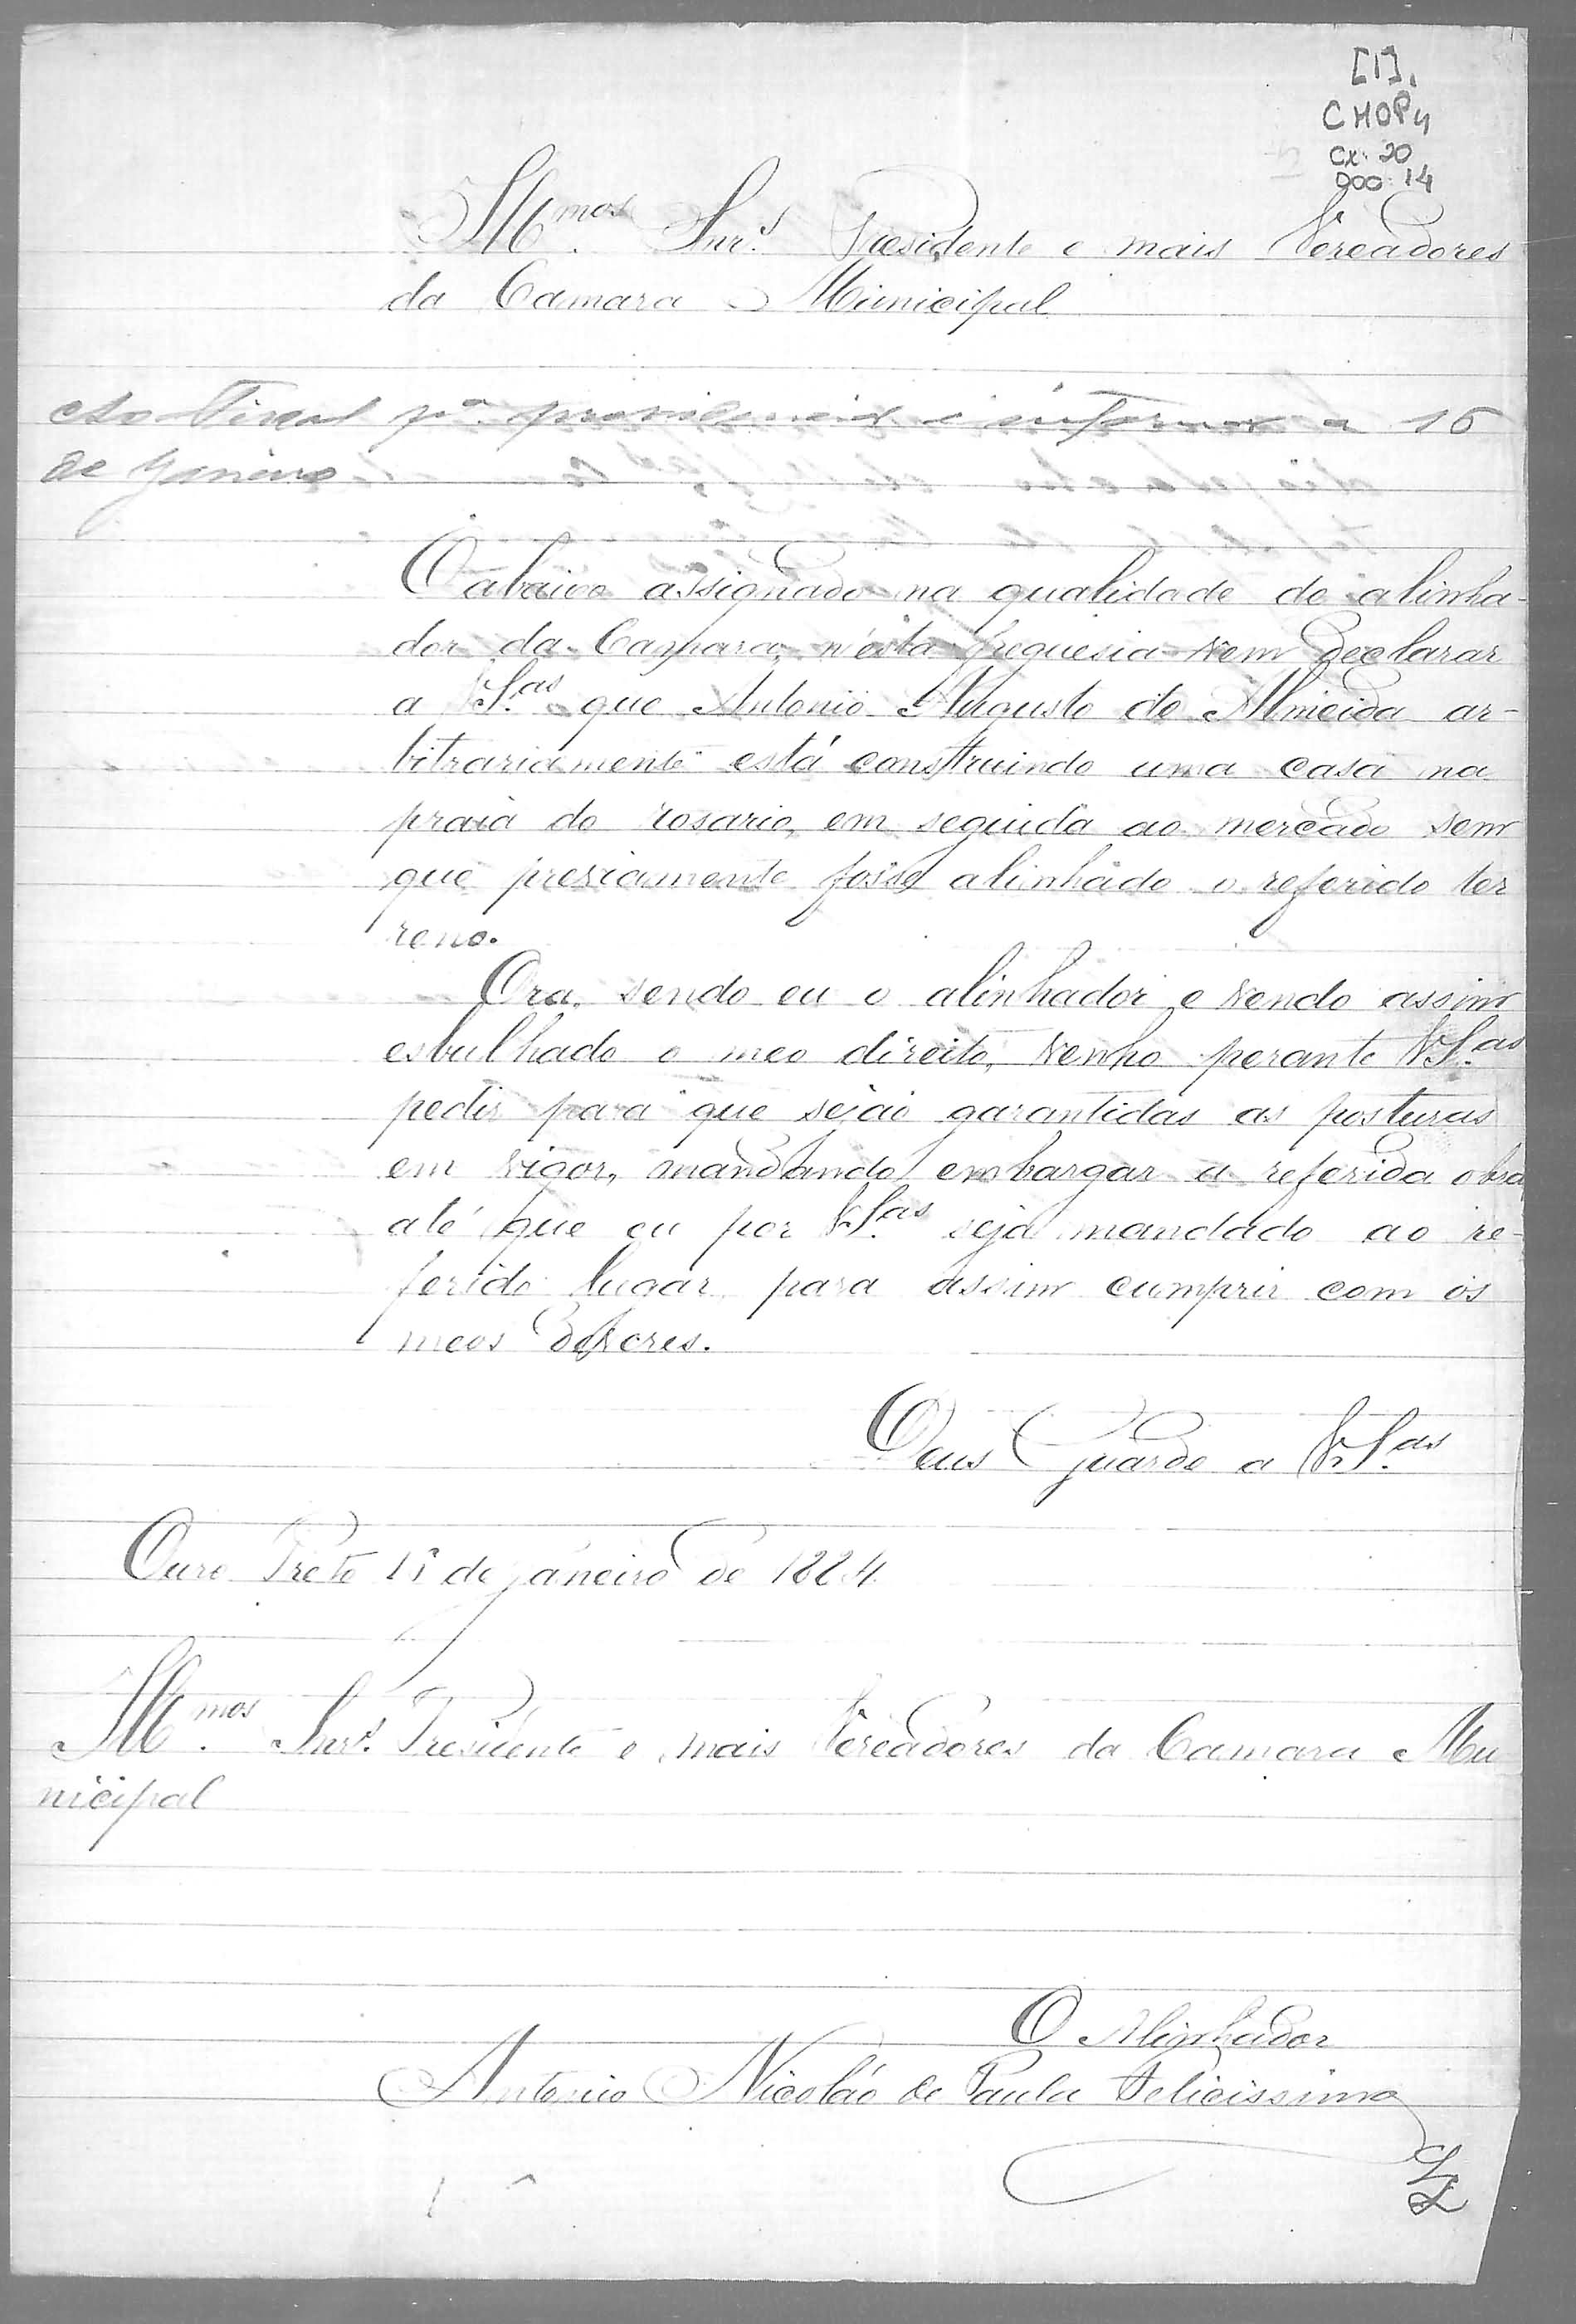 [1].
CMOP 4
Cx: 20
DOC: 14
Illmos. Snrs. Presidente e mais Vereadores
da Camara Municipal
Ao Fiscal pa. providenciar e informar a 15
de Janeiro
O abaixo assignado na qualidade de alinha-
dor da Camara, n'esta freguesia vem declarar
a VSas. que Antonio Augusto de Almeida ar-
bitrariamente está construindo uma casa na
praia do rosario, em seguida ao mercado sem
que previamente fosse alinhado o referido ter
reno.
Ora, sendo eu o alinhador, e vendo assim
esbulhado o meo direito, venho perante VSas.
pedir para que sejão garantidas as posturas
em vigor, mandando embargar a referida obra
até que eu por VSas. seja mandado ao re-
ferido lugar para assim cumprir com os
meos deveres.
Deus Guarde a VSas.
Ouro Preto de janeiro de 1884.
Illmos. Snrs. Presidente e mais Vereadores da Camara Mu
nicipal
O Alinhador
Antonio Nicoláo de Paula Felicissimo